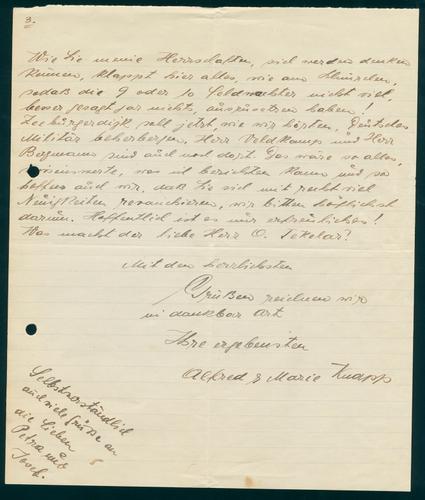 3.
Wie Sie meine Herrschaften, sich werden denken
können, klappt hier alles, wie am Schnürchen,
sodaß die 9 oder 10 Feldwächter nicht viel,
besser gesagt gar nichts, auszusetzen haben!
Zeebürgerdijk soll jetzt, wie wir hörten, Deutsches
Militär beherbergen, Herr Veldkamps und Herr
Bergmann sind auch noch dort. Das wäre so alles,
was ich berichten kann und so
hoffen auch wir, daß Sie sich mit recht viel
Neuigkeiten revanchieren, wir bitten höflichst
darum. Hoffentlich ist es nur erfreuliches!
Was macht der liebe Herr O. Tekelar?
Mit den herzlichsten
Grüßen zeichnen wir
in dankbar Art
Ihre ergebensten
Alfred & Marie Knapp
Selbstverständlich
auch viele Grüße an
die lieben
Petra und
Josef.